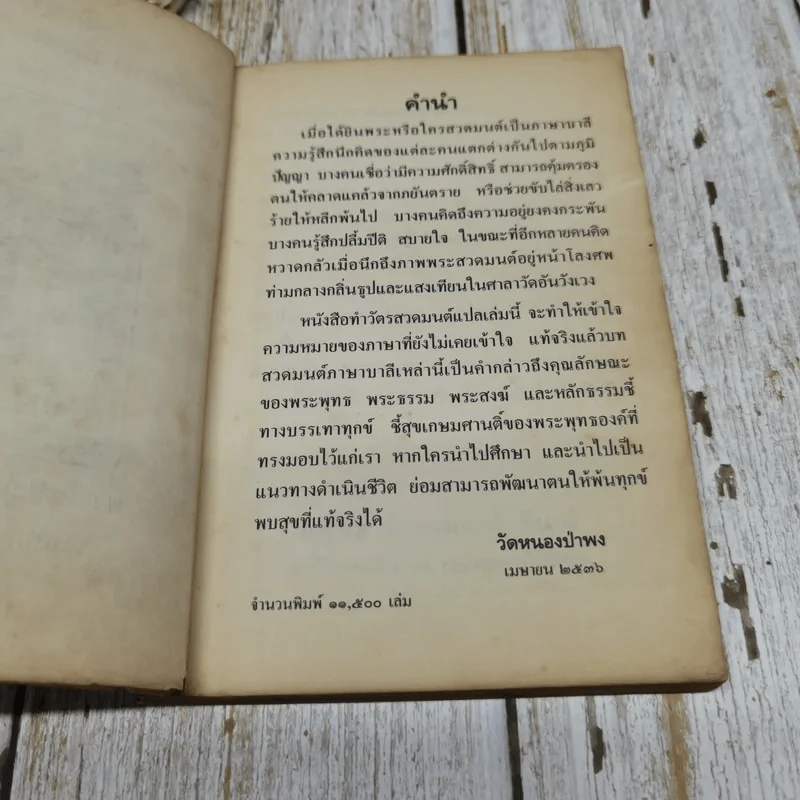 คำนำ
เมื่อได้ยินพระหรือใครสวดมนต์เป็นภาษาบาลี
ความรู้สึกนึกคิดของแต่ละคนแตกต่างกันไปตามภูมิ
ปัญญา บางคนเชื่อว่ามีความศักดิ์สิทธิ์ สามารถคุ้มครอง
ตนให้คลาดแคล้วจากภยันตราย หรือช่วยขับไล่สิ่งเลว
ร้ายให้หลีกพ้นไป บางคนคิดถึงความอยู่ยงคงกระพัน
บางคนรู้สึกปลื้มปีติ สบายใจ ในขณะที่อีกหลายคนคิด
หวาดกลัวเมื่อนึกถึงภาพพระสวดมนต์อยู่หน้าโลงศพ
ท่ามกลางกลิ่นธูปและแสงเทียนในศาลาวัดอันวังเวง
หนังสือทำวัตรสวดมนต์แปลเล่มนี้ จะทำให้เข้าใจ
ความหมายของภาษาที่ยังไม่เคยเข้าใจ แท้จริงแล้วบท
สวดมนต์ภาษาบาลีเหล่านี้เป็นคำกล่าวถึงคุณลักษณะ
ของพระพุทธ พระธรรม พระสงฆ์ และหลักธรรมชี้
ทางบรรเทาทุกข์ ชี้สุขเกษมศานติ์ของพระพุทธองค์ที่
ทรงมอบไว้แก่เรา หากใครนำไปศึกษา และนำไปเป็น
แนวทางดำเนินชีวิต ย่อมสามารถพัฒนาตนให้พ้นทุกข์
พบสุขที่แท้จริงได้
วัดหนองป่าพง
เมษายน ๒๕๓๖
จำนวนพิมพ์ ๑๑,๕๐๐ เล่ม